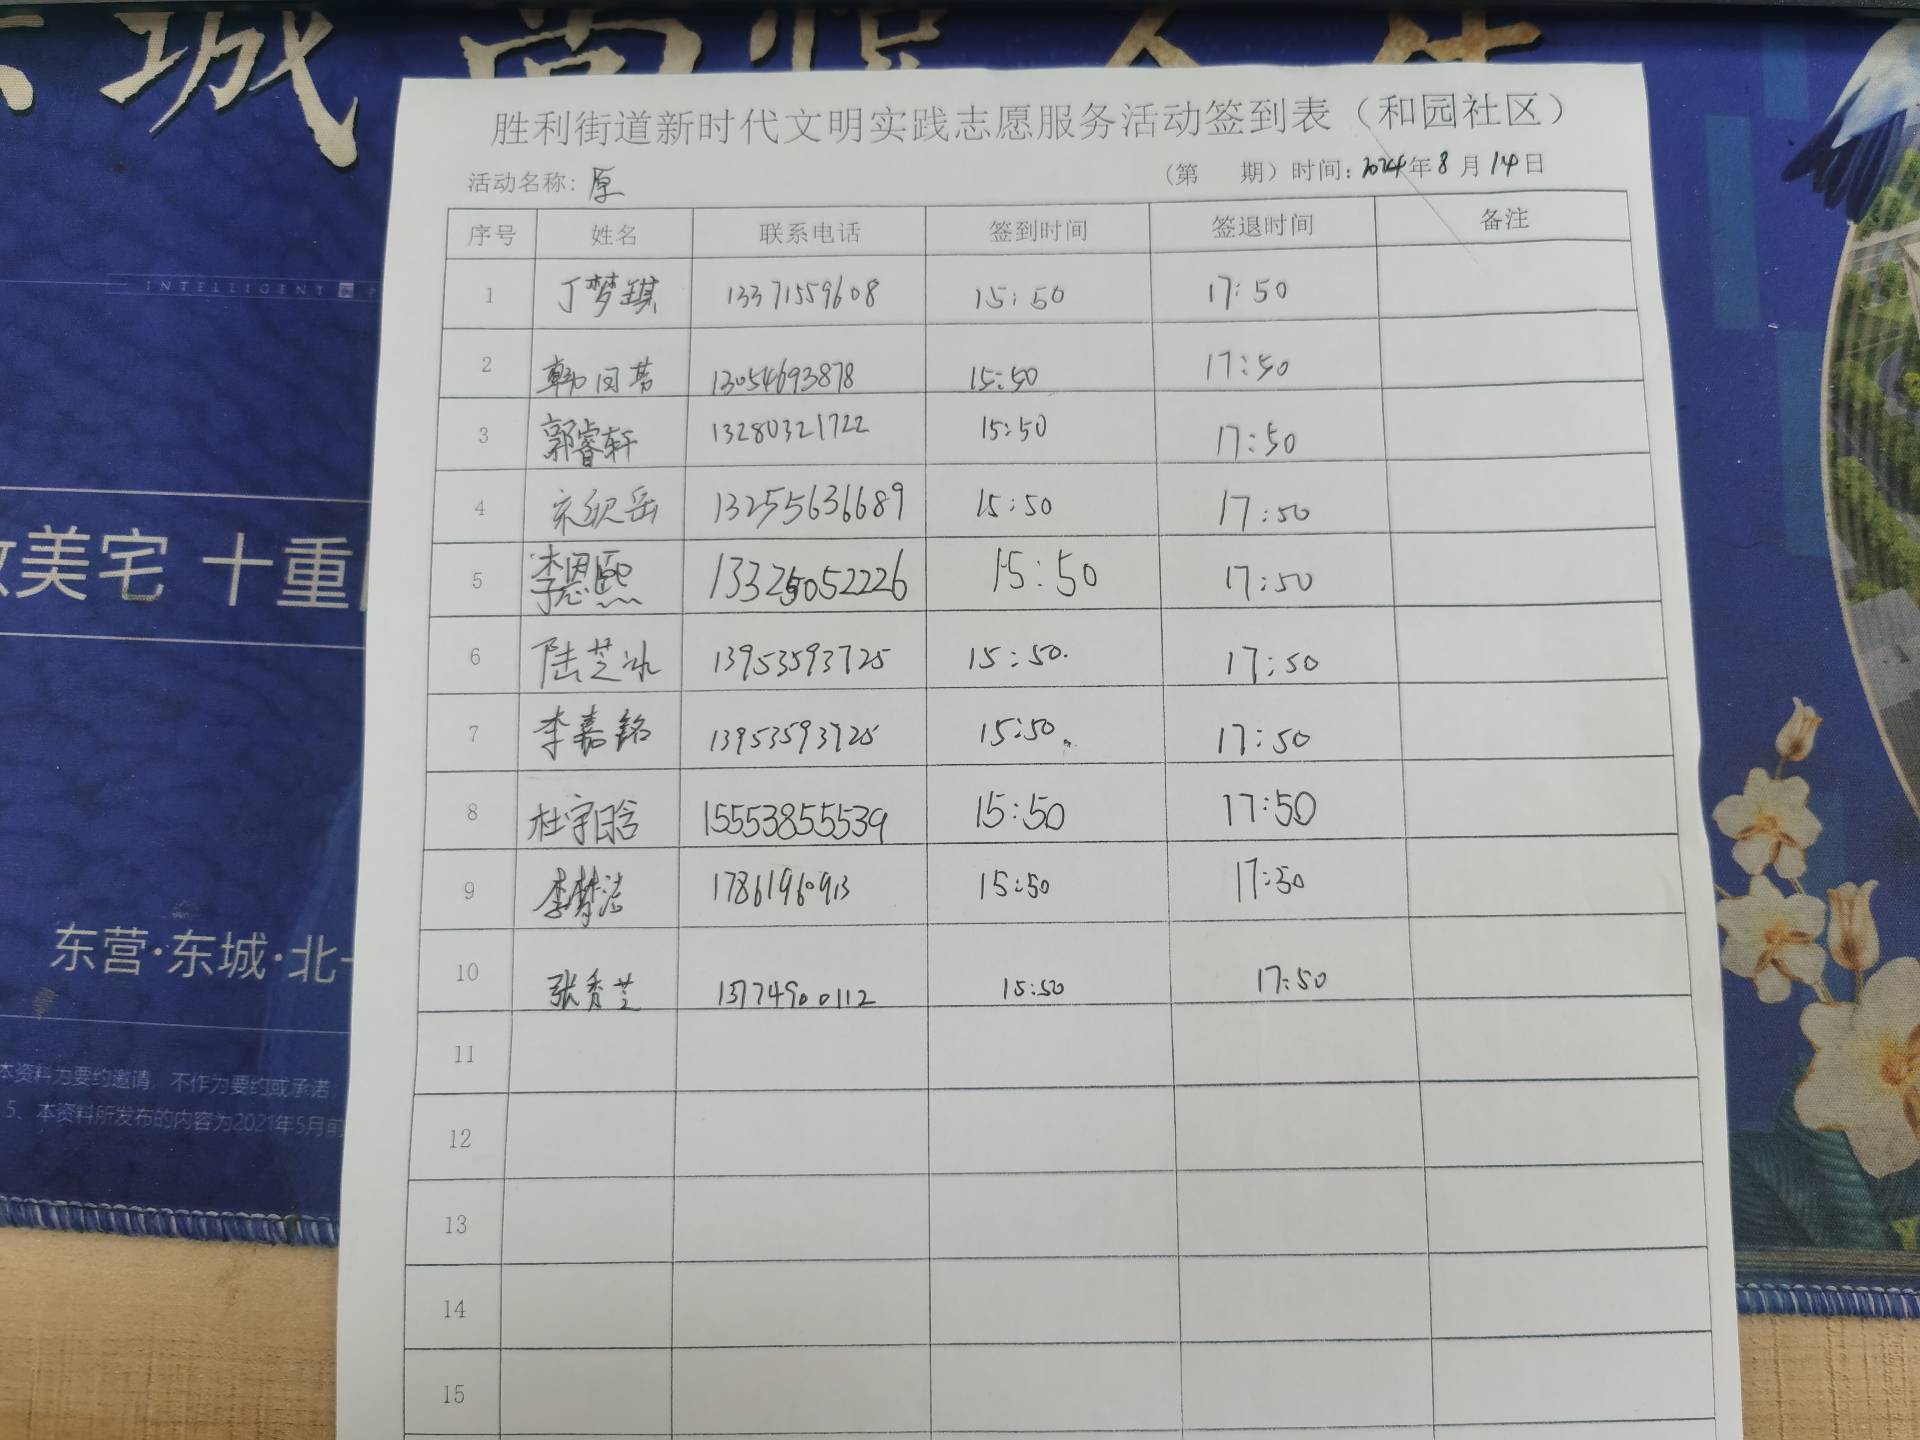 城
INTELLIGENT
美宅 十重
东营·东城·北
本资料为要约邀请，不作为要约或承诺，
5、本资料所发布的内容为2021年5月前
胜利街道新时代文明实践志愿服务活动签到表（和园社区）
活动名称：原 （第 期）时间：2024年8月14日
序号 姓名 联系电话 签到时间 签退时间 备注
1 丁梦琪 13371559608 15:50 17:50
2 韩 13054693878 15:50 17:50
3 郭睿轩 13280321722 15:50 17:50
4 宋 岳 13255636689 15:50 17:50
5 李恩熙 13325052226 15:50 17:50
6 陆芝冰 13953593725 15:50. 17:50
7 李嘉铭 13953593725 15:50. 17:50
8 杜宇晗 15553855539 15:50 17:50
9 李梦洁 17861960913 15:50 17:50
10 张秀芝 13774900112 15:50 17:50
11
12
13
14
15